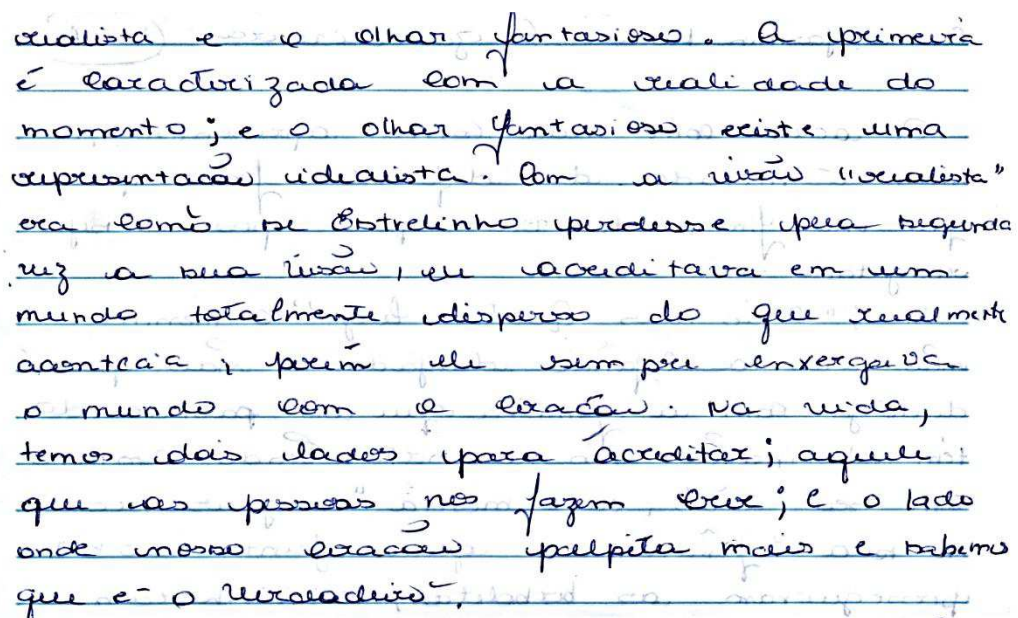 realista e o olhar fantasioso. A primeira
é caracterizada com a realidade do
momento; e o olhar fantasioso existe uma
representacão idealista. Com a visão "realista"
era como se Estrelinho perdesse pela segunda
vez a sua visão, ele acreditava em um
mundo totalmente disperso do que realmente
acontecia, porém ele sempre enxergava
o mundo com o coracão. Na vida,
temos dois lados para acreditar; aquele
que as pessoas nos fazem crer; e o lado
onde nosso coracão palpita mais e sabemos
que é o verdadeiro.